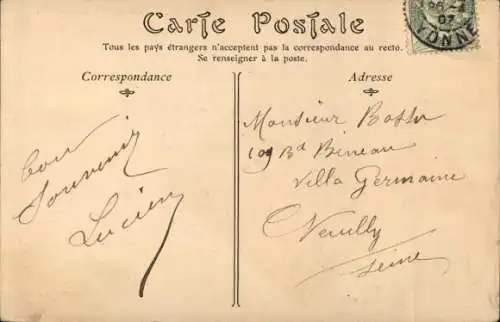 Carte Postale
Tous les pays étrangers n'acceptent pas la correspondance au recto.
Se renseigner à la poste.
Correspondance
Adresse
bon
Souvenir
Lucien
Monsieur
109 Bd Bineau
Villa Germaine
Neuilly
Seine
07
YONNE